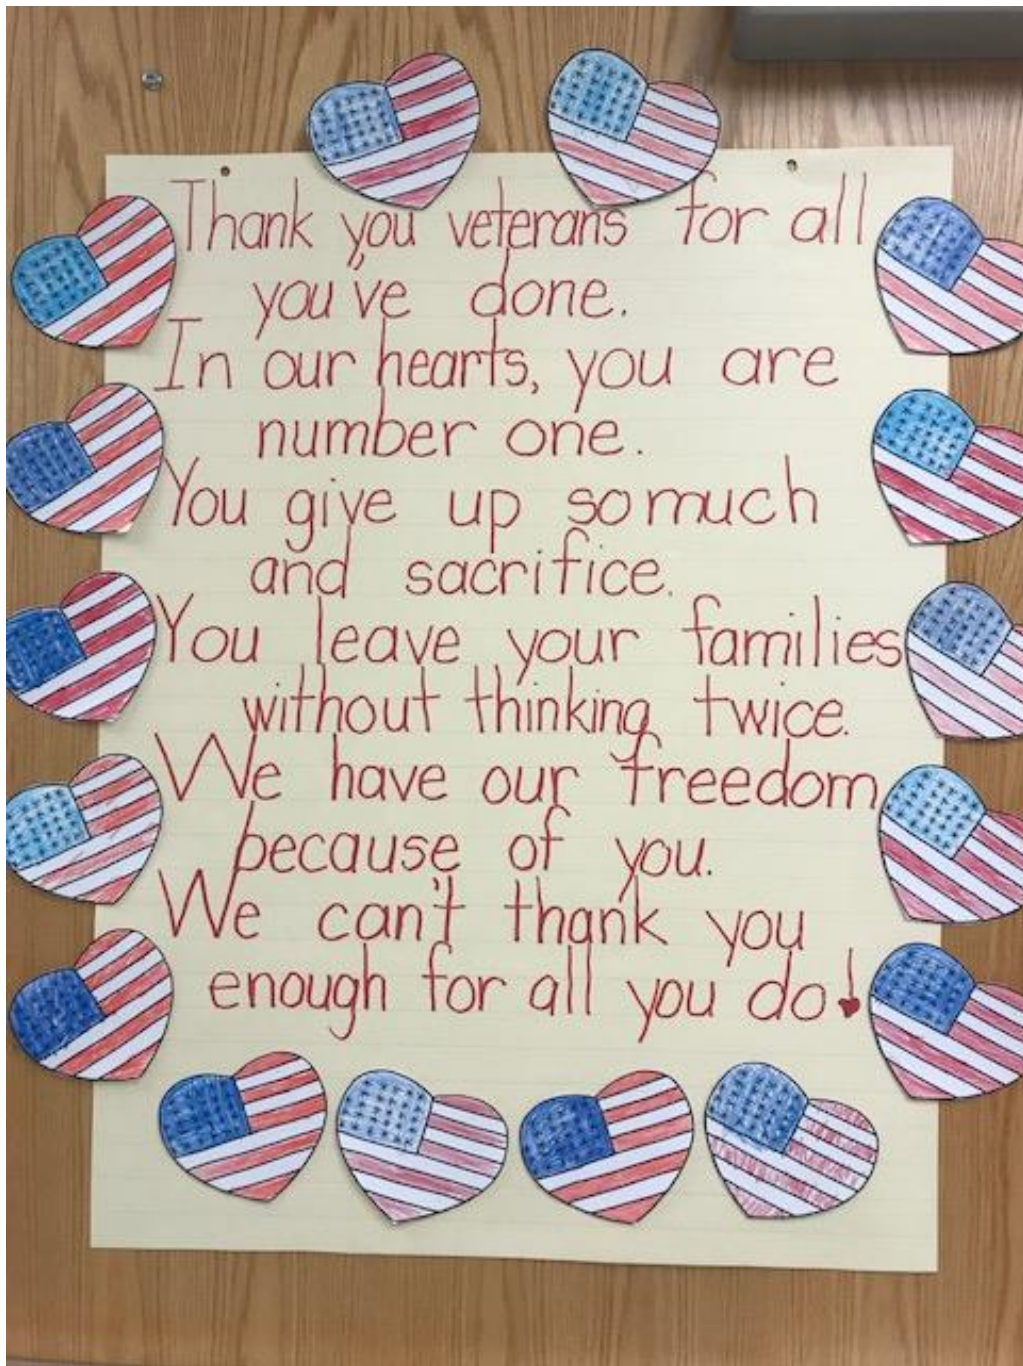 Thank you veterans for all
you've done.
In our hearts, you are
number one.
You give up so much
and sacrifice.
You leave your families
without thinking twice.
We have our freedom
because of you.
We can't thank you
enough for all you do!